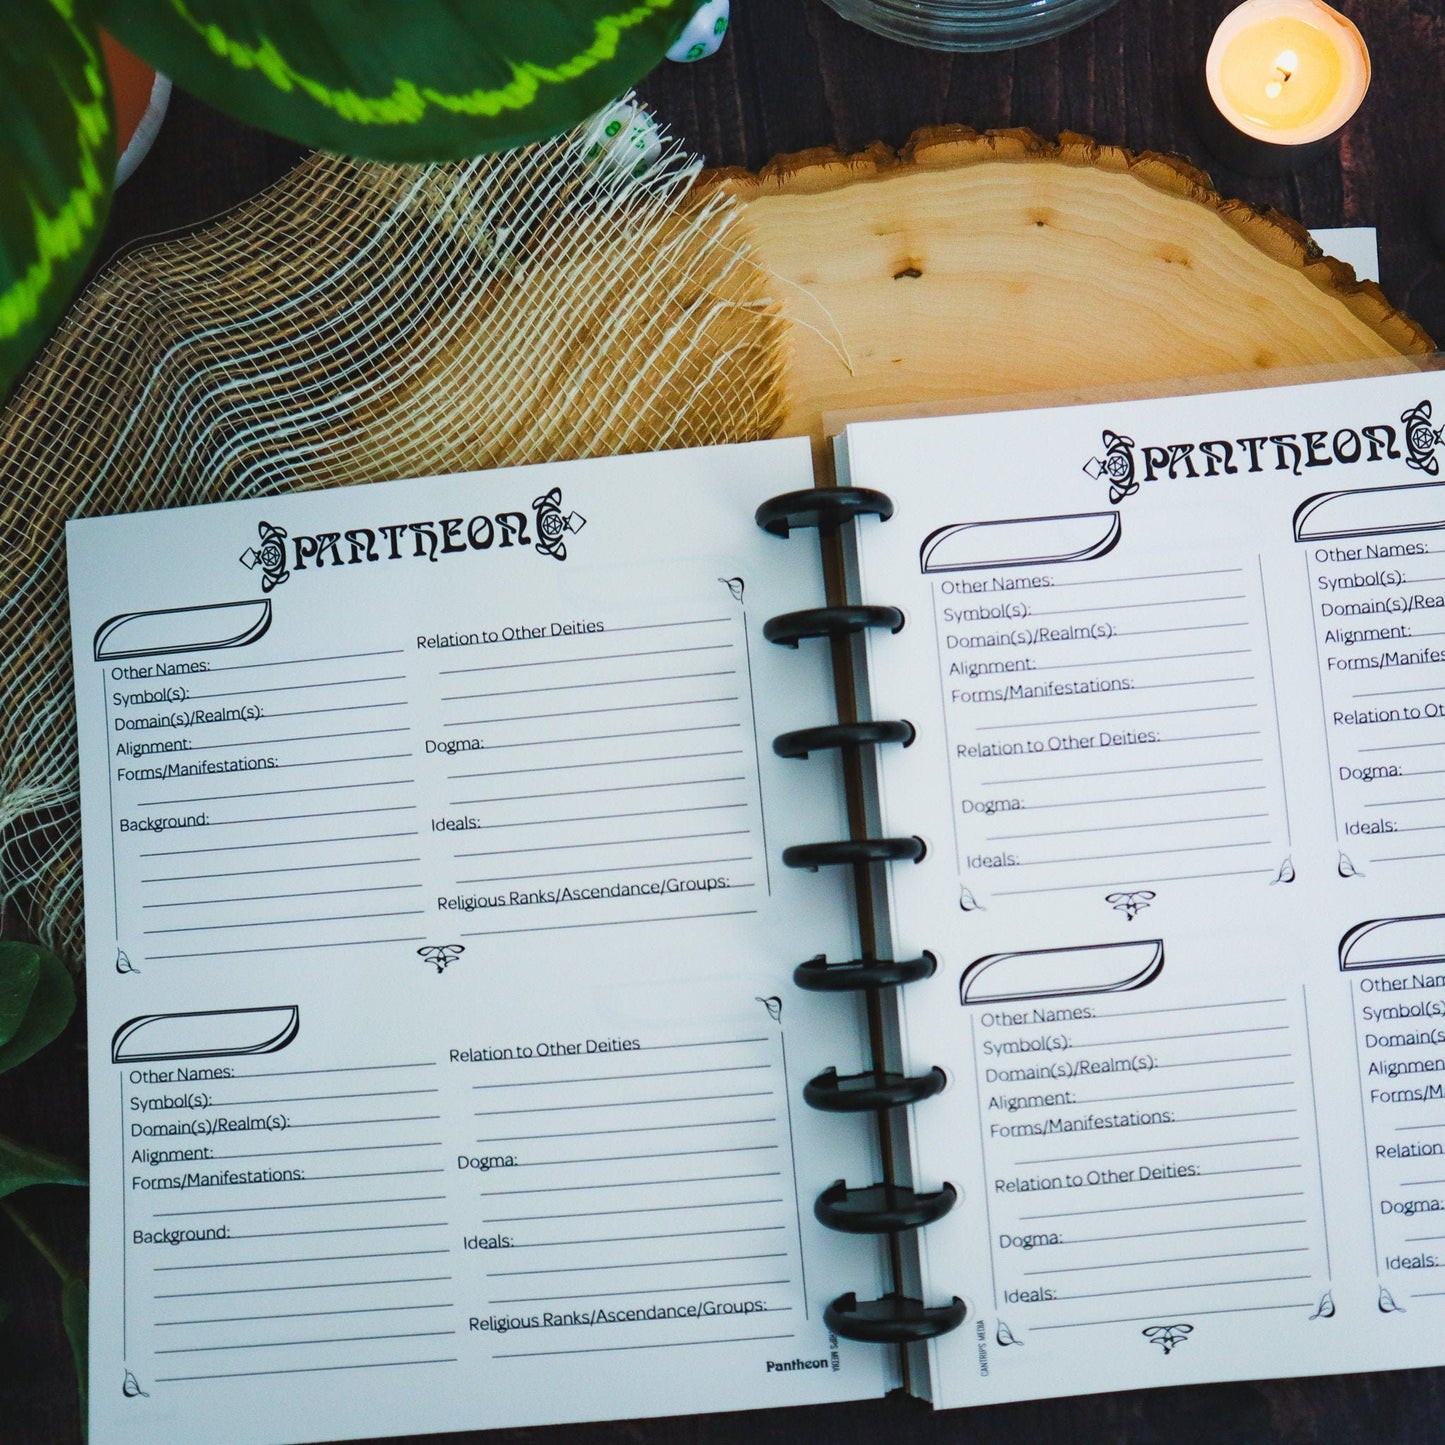 PANTHEON
Other Names:
Symbol(s):
Domain(s)/Realm(s):
Alignment:
Forms/Manifestations:
Background:
Relation to Other Deities
Dogma:
Ideals:
Religious Ranks/Ascendance/Groups:
Other Names:
Symbol(s):
Domain(s)/Realm(s):
Alignment:
Forms/Manifestations:
Background:
Relation to Other Deities
Dogma:
Ideals:
Religious Ranks/Ascendance/Groups:
Pantheon
MEDIA
PANTHEON
Other Names:
Symbol(s):
Domain(s)/Realm(s):
Alignment:
Forms/Manifestations:
Relation to Other Deities:
Dogma:
Ideals:
Other Names:
Symbol(s):
Domain(s)/Rea
Alignment:
Forms/Manifes
Relation to Ot
Dogma:
Ideals:
Other Names:
Symbol(s):
Domain(s)/Realm(s):
Alignment:
Forms/Manifestations:
Relation to Other Deities:
Dogma:
Ideals:
Other Nam
Symbol(s)
Domain(s
Alignmen
Forms/M
Relation
Dogma:
Ideals:
CANTRIPS MEDIA